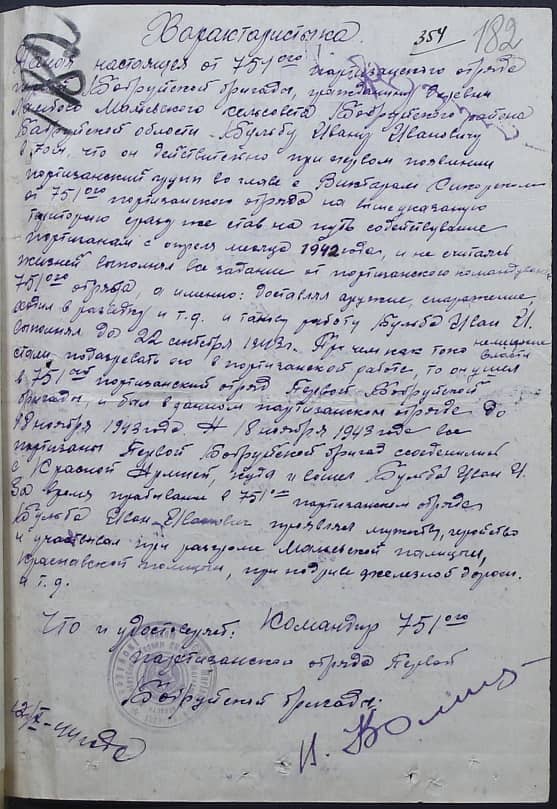 Характарыстыка.
354
182
182
настоящея от 751ого партизанского отряда
Бобруйской бригады, гражданину деревни
сельсовета Бобруйского района
Бобруйской области. Бульбу Ивану Ивановичу
в том, что он действительно при первом появлении
партизанский групп во главе с Виктарам
от 751ого партизанского отряда на вышеуказаную
територию сразу же став на путь содействование
партизанам с апреля месяца 1942 года, и не считаясь
жизней выполнял все задание от партизанского командования
751ого отряда, а именно: доставлял аружие, снаряжение,
ходил в разведку и т.д. и такую работу Бульба Иван И.
выполнял до 22 сентября 1943 г. При чем как токо немецкие власти
стали подазревать его в партизанской работе, то он ушел
в 751ый партизанский отряд Первой Бобруйской
бригады, и был в данном партизанском отряде до
18 ноября 1943 года. А 18 ноября 1943 года все
партизаны Первой Бобруйской бригад соеденились
с Красной Армией, куда и вошел Бульба Иван И.
За время прабывание в 751ом партизанском отряде
Бульба Иван Иванович проявлял мужество, геройство
и участвовал при разгроме полиции,
полиции, при подрыве железной дороги.
и т.д.
Что и удостоверяет. Командир 751ого
партизанского отряда Первой
Бобруйской бригады:
44 года